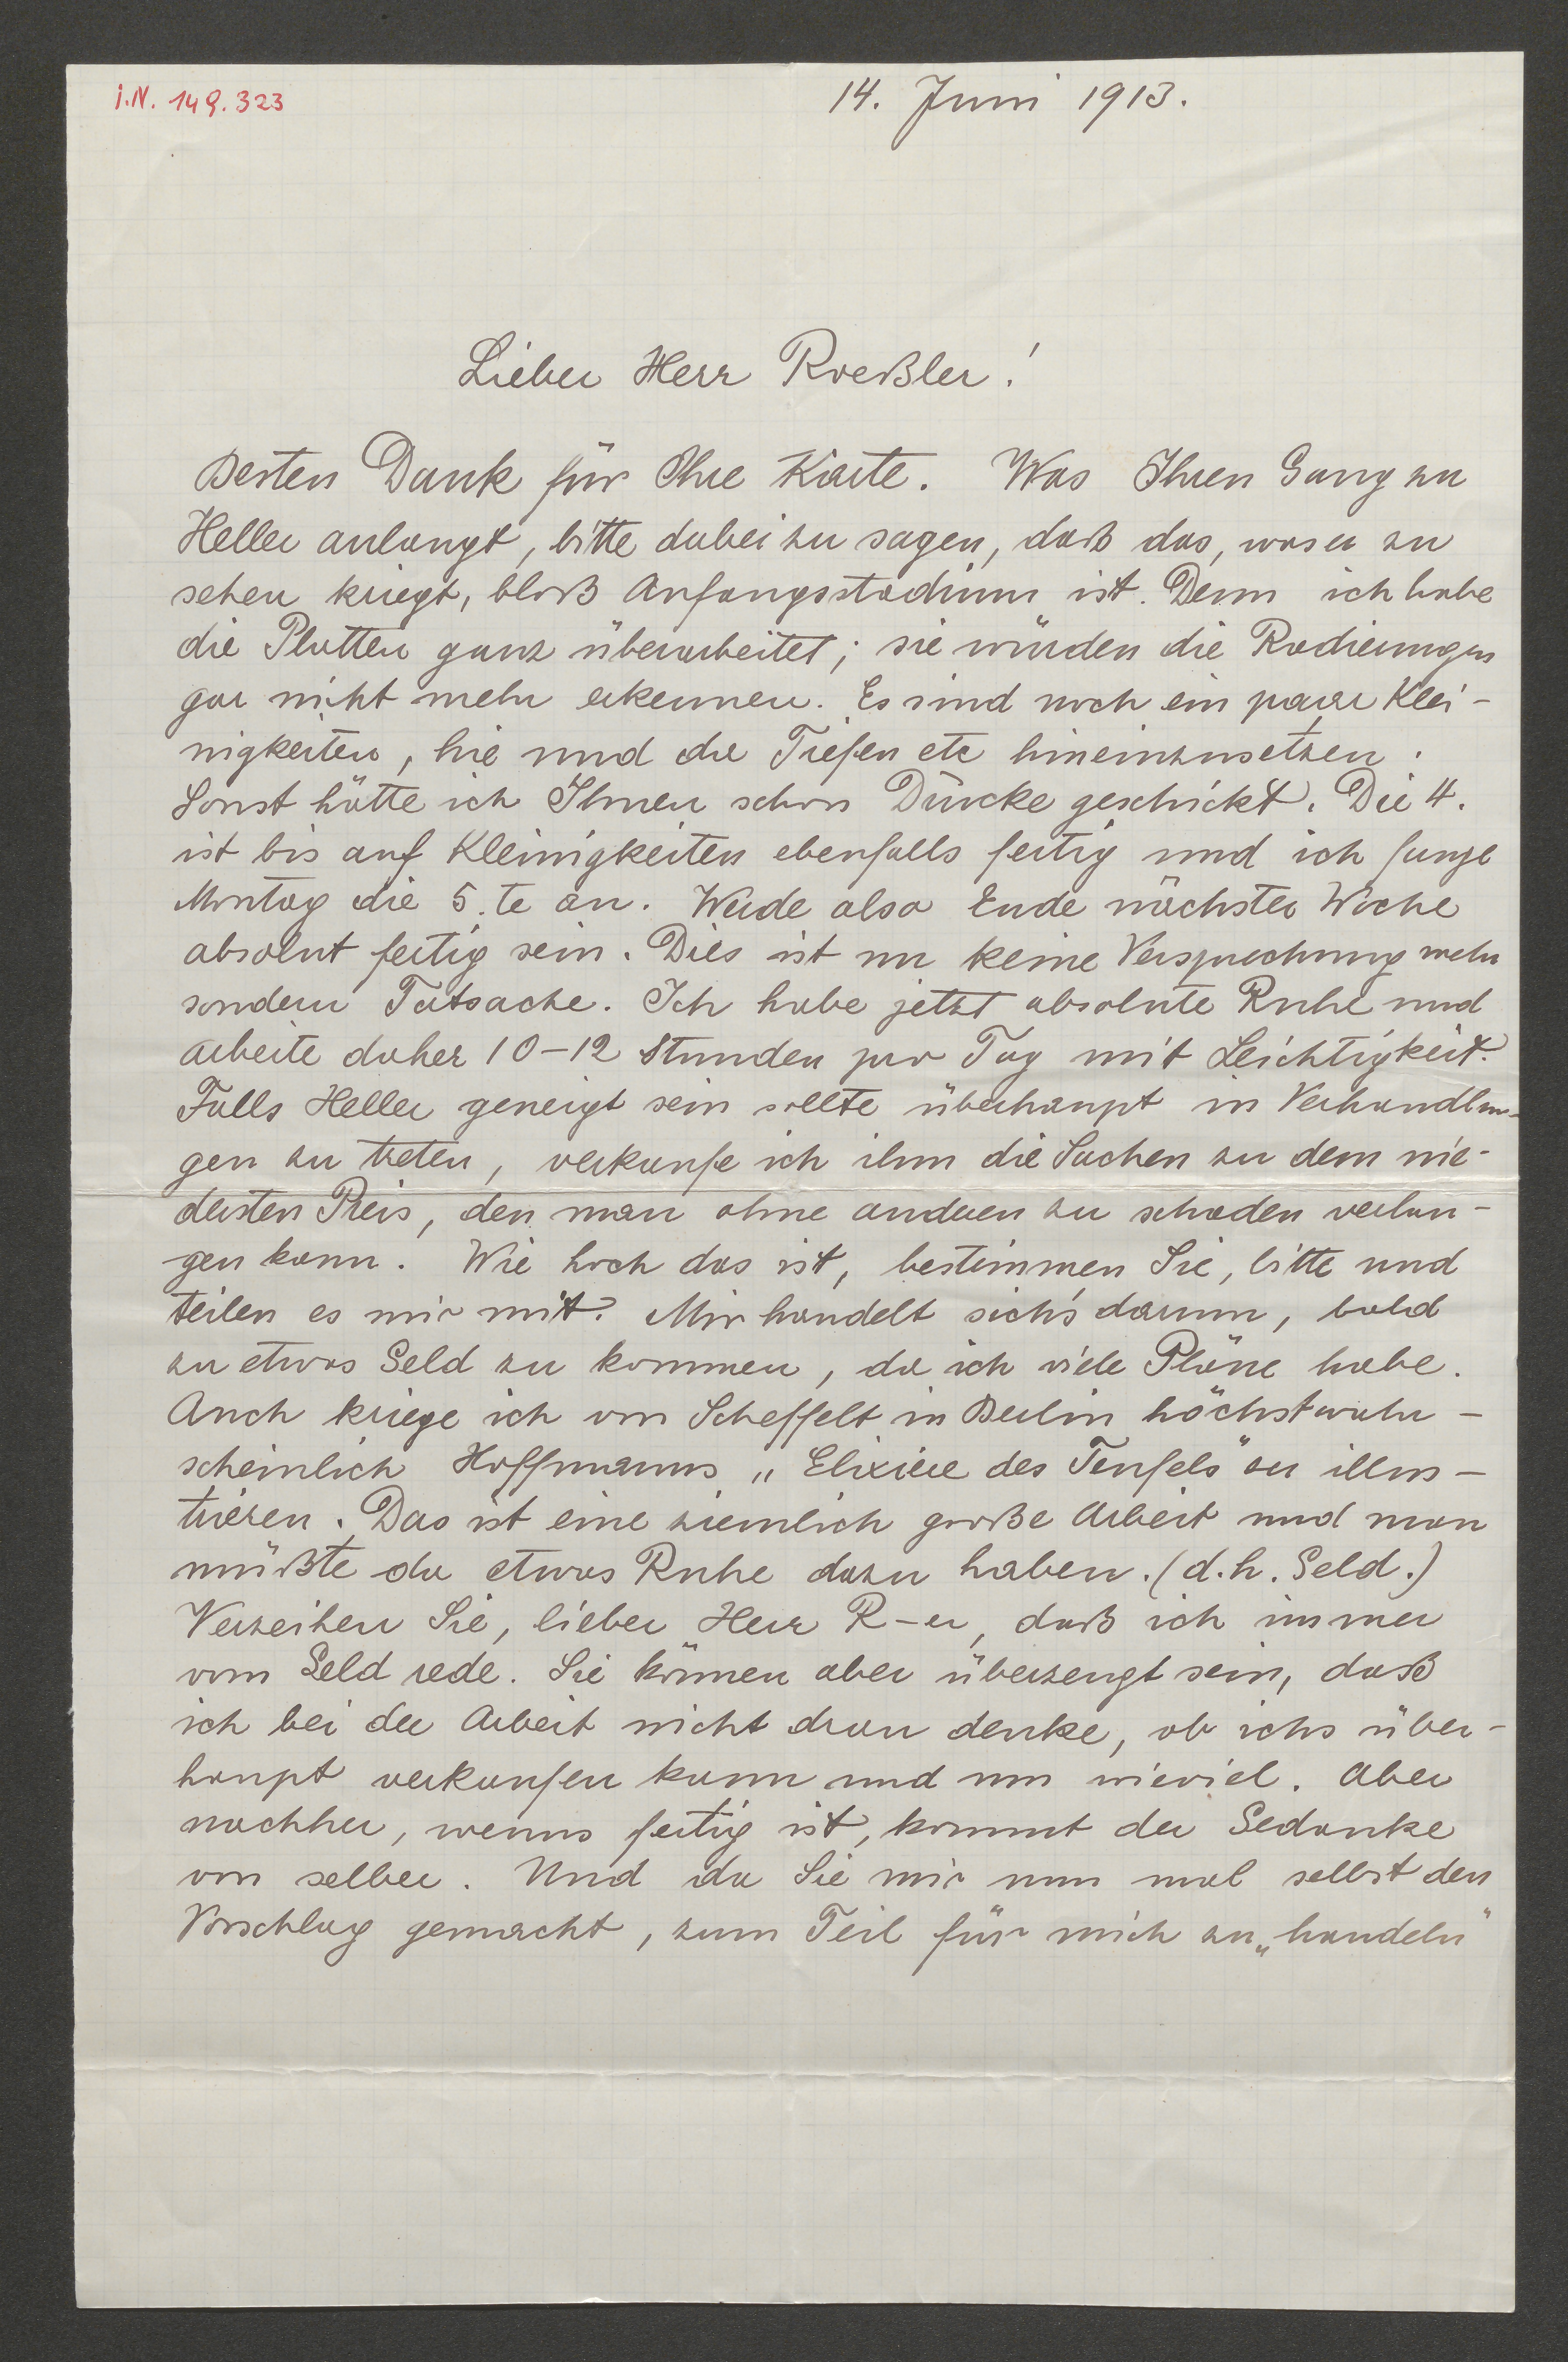 i.N. 149.323
14. Juni 1913.
Lieber Herr Roeßler!
Besten Dank für Ihre Karte. Was Ihren Gang zu
Heller anlangt, bitte dabei zu sagen, daß das, was er zu
sehen kriegt, bloß Anfangsstadium ist. Denn ich habe
die Platten ganz überarbeitet; sie würden die Radierungen
gar nicht mehr erkennen. Es sind noch ein paar Klei-
nigkeiten, hie und da Tiefen etc hineinzusetzen.
Sonst hätte ich Ihnen schon Drucke geschickt. Die 4.
ist bis auf Kleinigkeiten ebenfalls fertig und ich fange
Montag die 5.te an. Werde also Ende nächster Woche
absolut fertig sein. Dies ist nu keine Versprechung mehr
sondern Tatsache. Ich habe jetzt absolute Ruhe und
arbeite daher 10-12 Stunden pro Tag mit Leichtigkeit.
Falls Heller geneigt sein sollte überhaupt in Verhandlun-
gen zu treten, verkaufe ich ihm die Sachen zu dem nie-
dersten Preis, den man ohne anderen zu schaden verlan-
gen kann. Wie hoch das ist, bestimmen Sie, bitte und
teilen es mir mit. Mir handelt sich's darum, bald
zu etwas Geld zu kommen, da ich viele Pläne habe.
Auch kriege ich von Scheffelt in Berlin höchstwahr-
scheinlich Hoffmanns „Elixiere des Teufels" zu illus-
trieren. Das ist eine ziemlich große Arbeit und man
müßte da etwas Ruhe dazu haben. (d.h. Geld.)
Verzeihen Sie, lieber Herr R-er, daß ich immer
vom Geld rede. Sie können aber überzeugt sein, daß
ich bei der Arbeit nicht dran denke, ob ichs über-
haupt verkaufen kann und um wieviel. Aber
nachher, wenns fertig ist, kommt der Gedanke
von selber. Und da Sie mir nun mal selbst den
Vorschlag gemacht, zum Teil für mich zu „handeln"